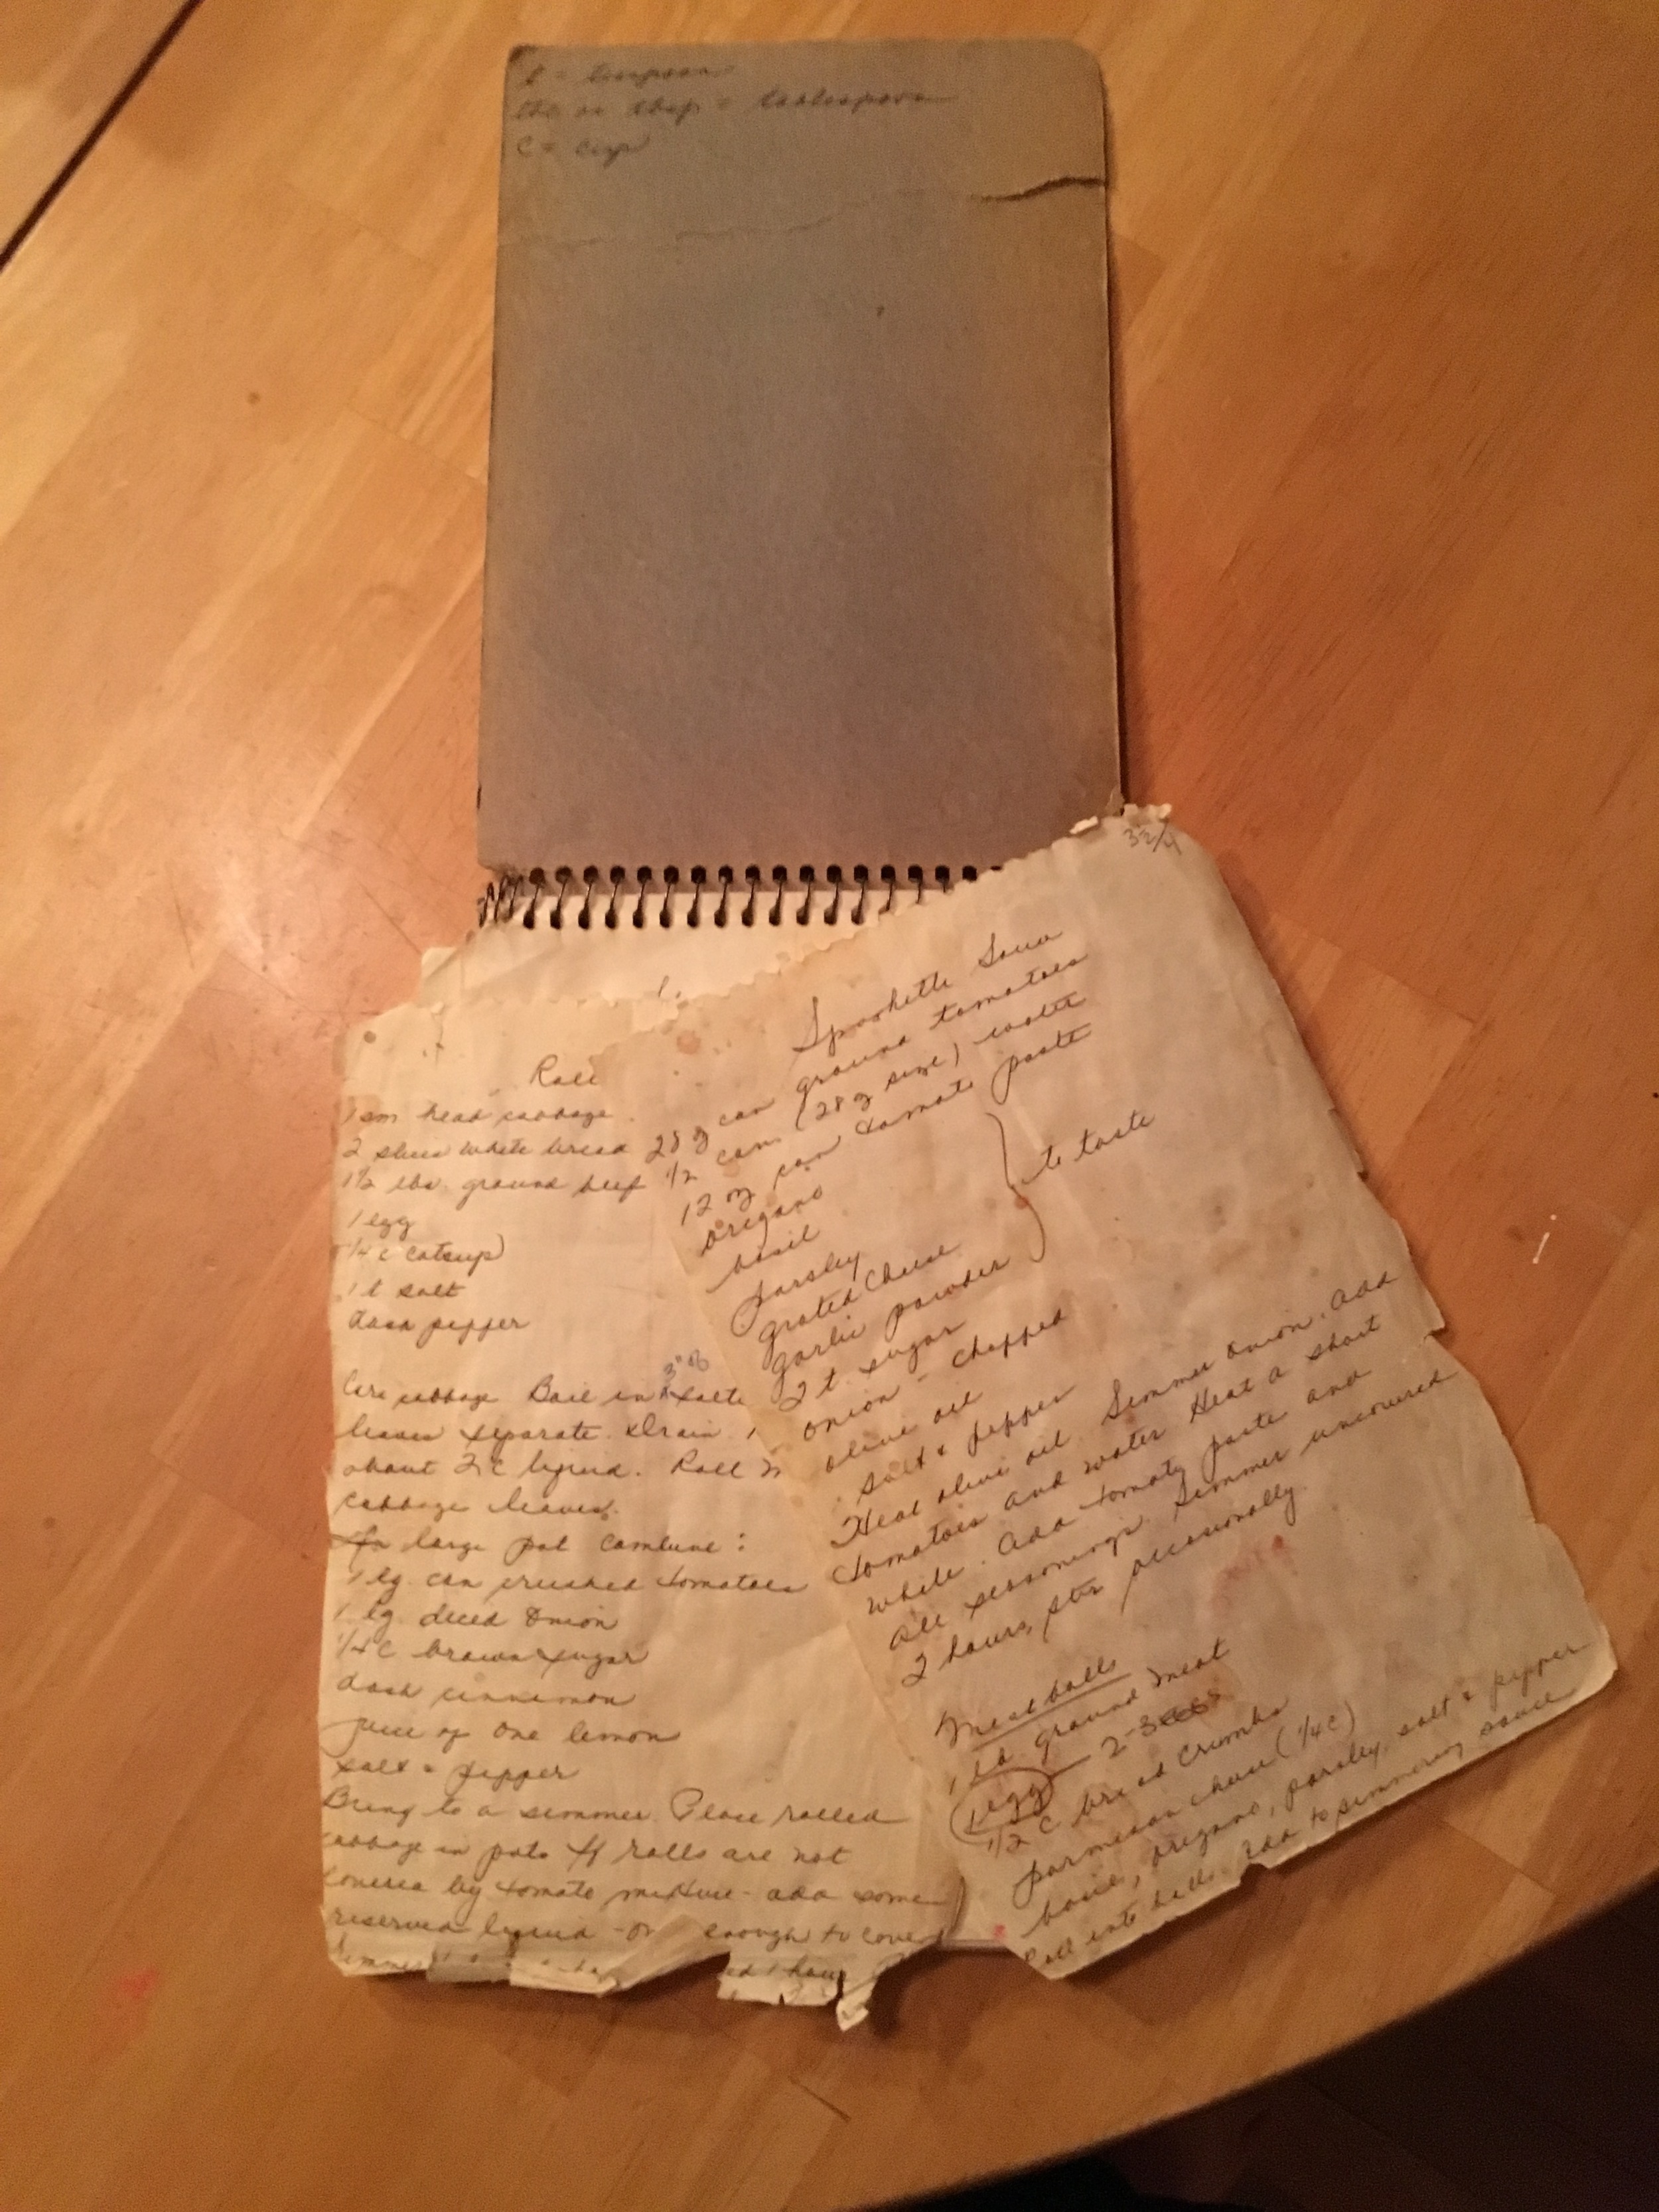 t = teaspoon
tbs or tbsp = tablespoon
c = cup
1.
Roll
1 sm head cabbage
2 slices white bread
1 1/2 lbs. ground beef
1 egg
1/4 c catsup
1 t salt
dash pepper
Core cabbage Boil in salte
leaves separate. Drain.
about 2 c liquid. Roll
cabbage leaves.
In large pot combine:
1 lg. can crushed tomatoes
1 lg. diced onion
1/4 c brown sugar
dash cinnamon
juice of one lemon
salt & pepper
Bring to a simmer. Place rolled
cabbage in pot. If rolls are not
covered by tomato mixture - add some
reserved liquid - or enough to cover
hour
32/4
Spaghetti Sauce
28 oz can ground tomatoes
1/2 can (28 oz size) water
12 oz can tomato paste
oregano
basil
parsley
grated cheese
garlic powder
to taste
2 t. sugar
onion - chopped
olive oil
salt & pepper
Heat olive oil. Simmer onion. Add
tomatoes and water Heat a short
while. Add tomato paste and
all seasonings. Simmer uncovered
2 hours, stir occasionally.
Meatballs
1 lb ground meat
1 egg 2-3
1/2 c bread crumbs
parmesan cheese (1/4 c)
basil, oregano, parsley, salt & pepper
Roll into balls. Add to simmering sauce